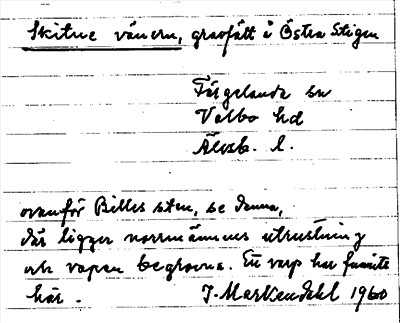 Skitne vänern, gravfält å Östra Stigen
Färgelanda sn
Valbo hd
Älvsb. l.
ovanför Billes sten, se denna,
där ligger norrmännens utrustning
och vapen begravna. En varp har funnits
här. J. Markendahl 1960